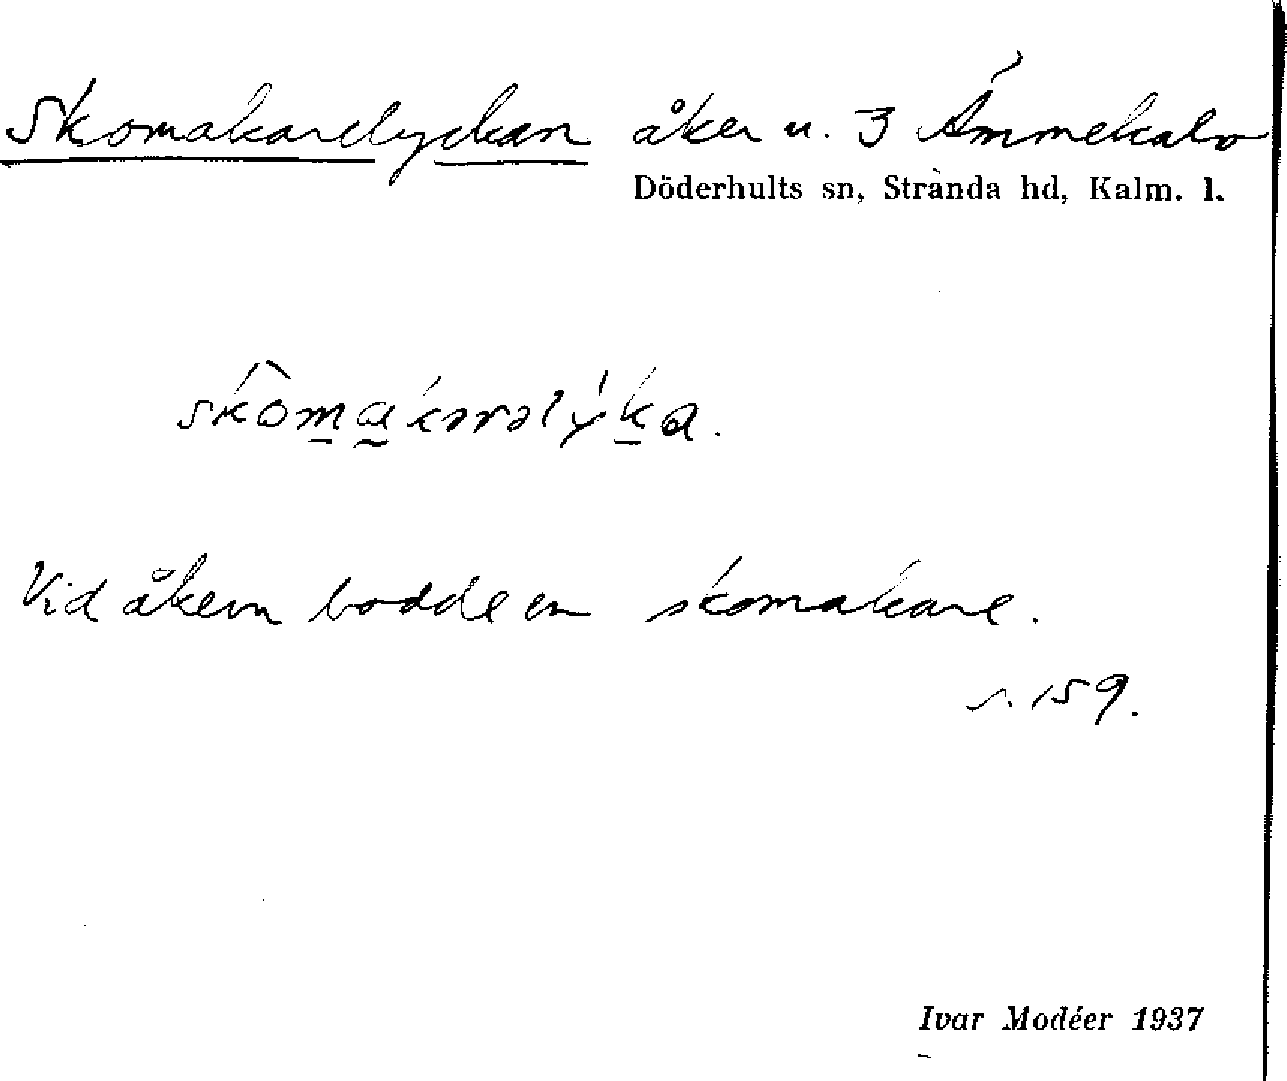 Skomakarelyckan åker u. 3 Ämmekalv
Döderhults sn, Stranda hd, Kalm. l.
skòmakarəlýka.
Vid åkern bodde en skomakare.
s. 159.
Ivar Modéer 1937